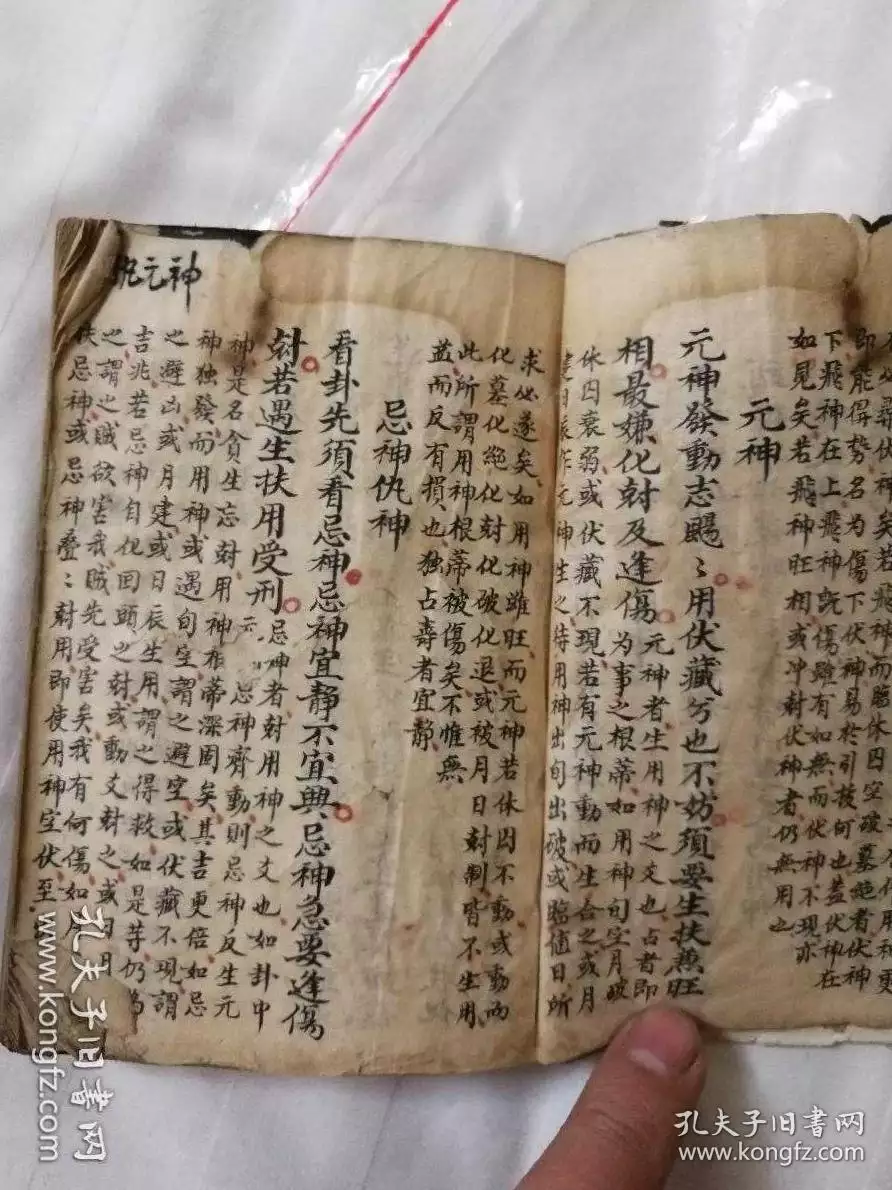 即能得勢名為傷下伏神易於引拔何也蓋伏神在
下飛神在上飛神既傷雖有如無而伏神不現亦
如見矣若飛神旺相或冲尅伏神者仍無用也
元神
元神發動志颺〻用伏藏兮也不妨須要生扶煞旺
相最嫌化尅及逢傷元神者生用神之爻也占者即
為事之根蒂如用神旬空月破
休囚衰弱或伏藏不現若有元神動而生合之或月
建日辰作元神生之待用神出旬出破或臨值日所
求必遂矣如用神雖旺而元神若休囚不動或動而
化墓化絕化尅化破化退或被月日尅制皆不生用
此所謂用神根蒂被傷矣不惟無
益而反有損也独占壽者宜静
忌神仇神
看卦先須看忌神忌神宜静不宜興忌神急要逢傷
尅若遇生扶用受刑忌神者尅用神之爻也如卦中
忌神齊動則忌神反生元
神是名貪生忘尅用神根蒂深固矣其吉更倍如忌
神独發而用神或遇旬空謂之避空或伏藏不現謂
之避凶或月建或日辰生用謂之得救如是等仍為
吉兆若忌神自化回頭之尅或動爻尅之或日月
之謂之賊欲害我賊先受害矣我有何傷如用
伏忌神或忌神疊〻尅用即使用神空伏至
仇元神
孔夫子旧書网
www.kongfz.com
孔夫子旧書网
www.kongfz.com